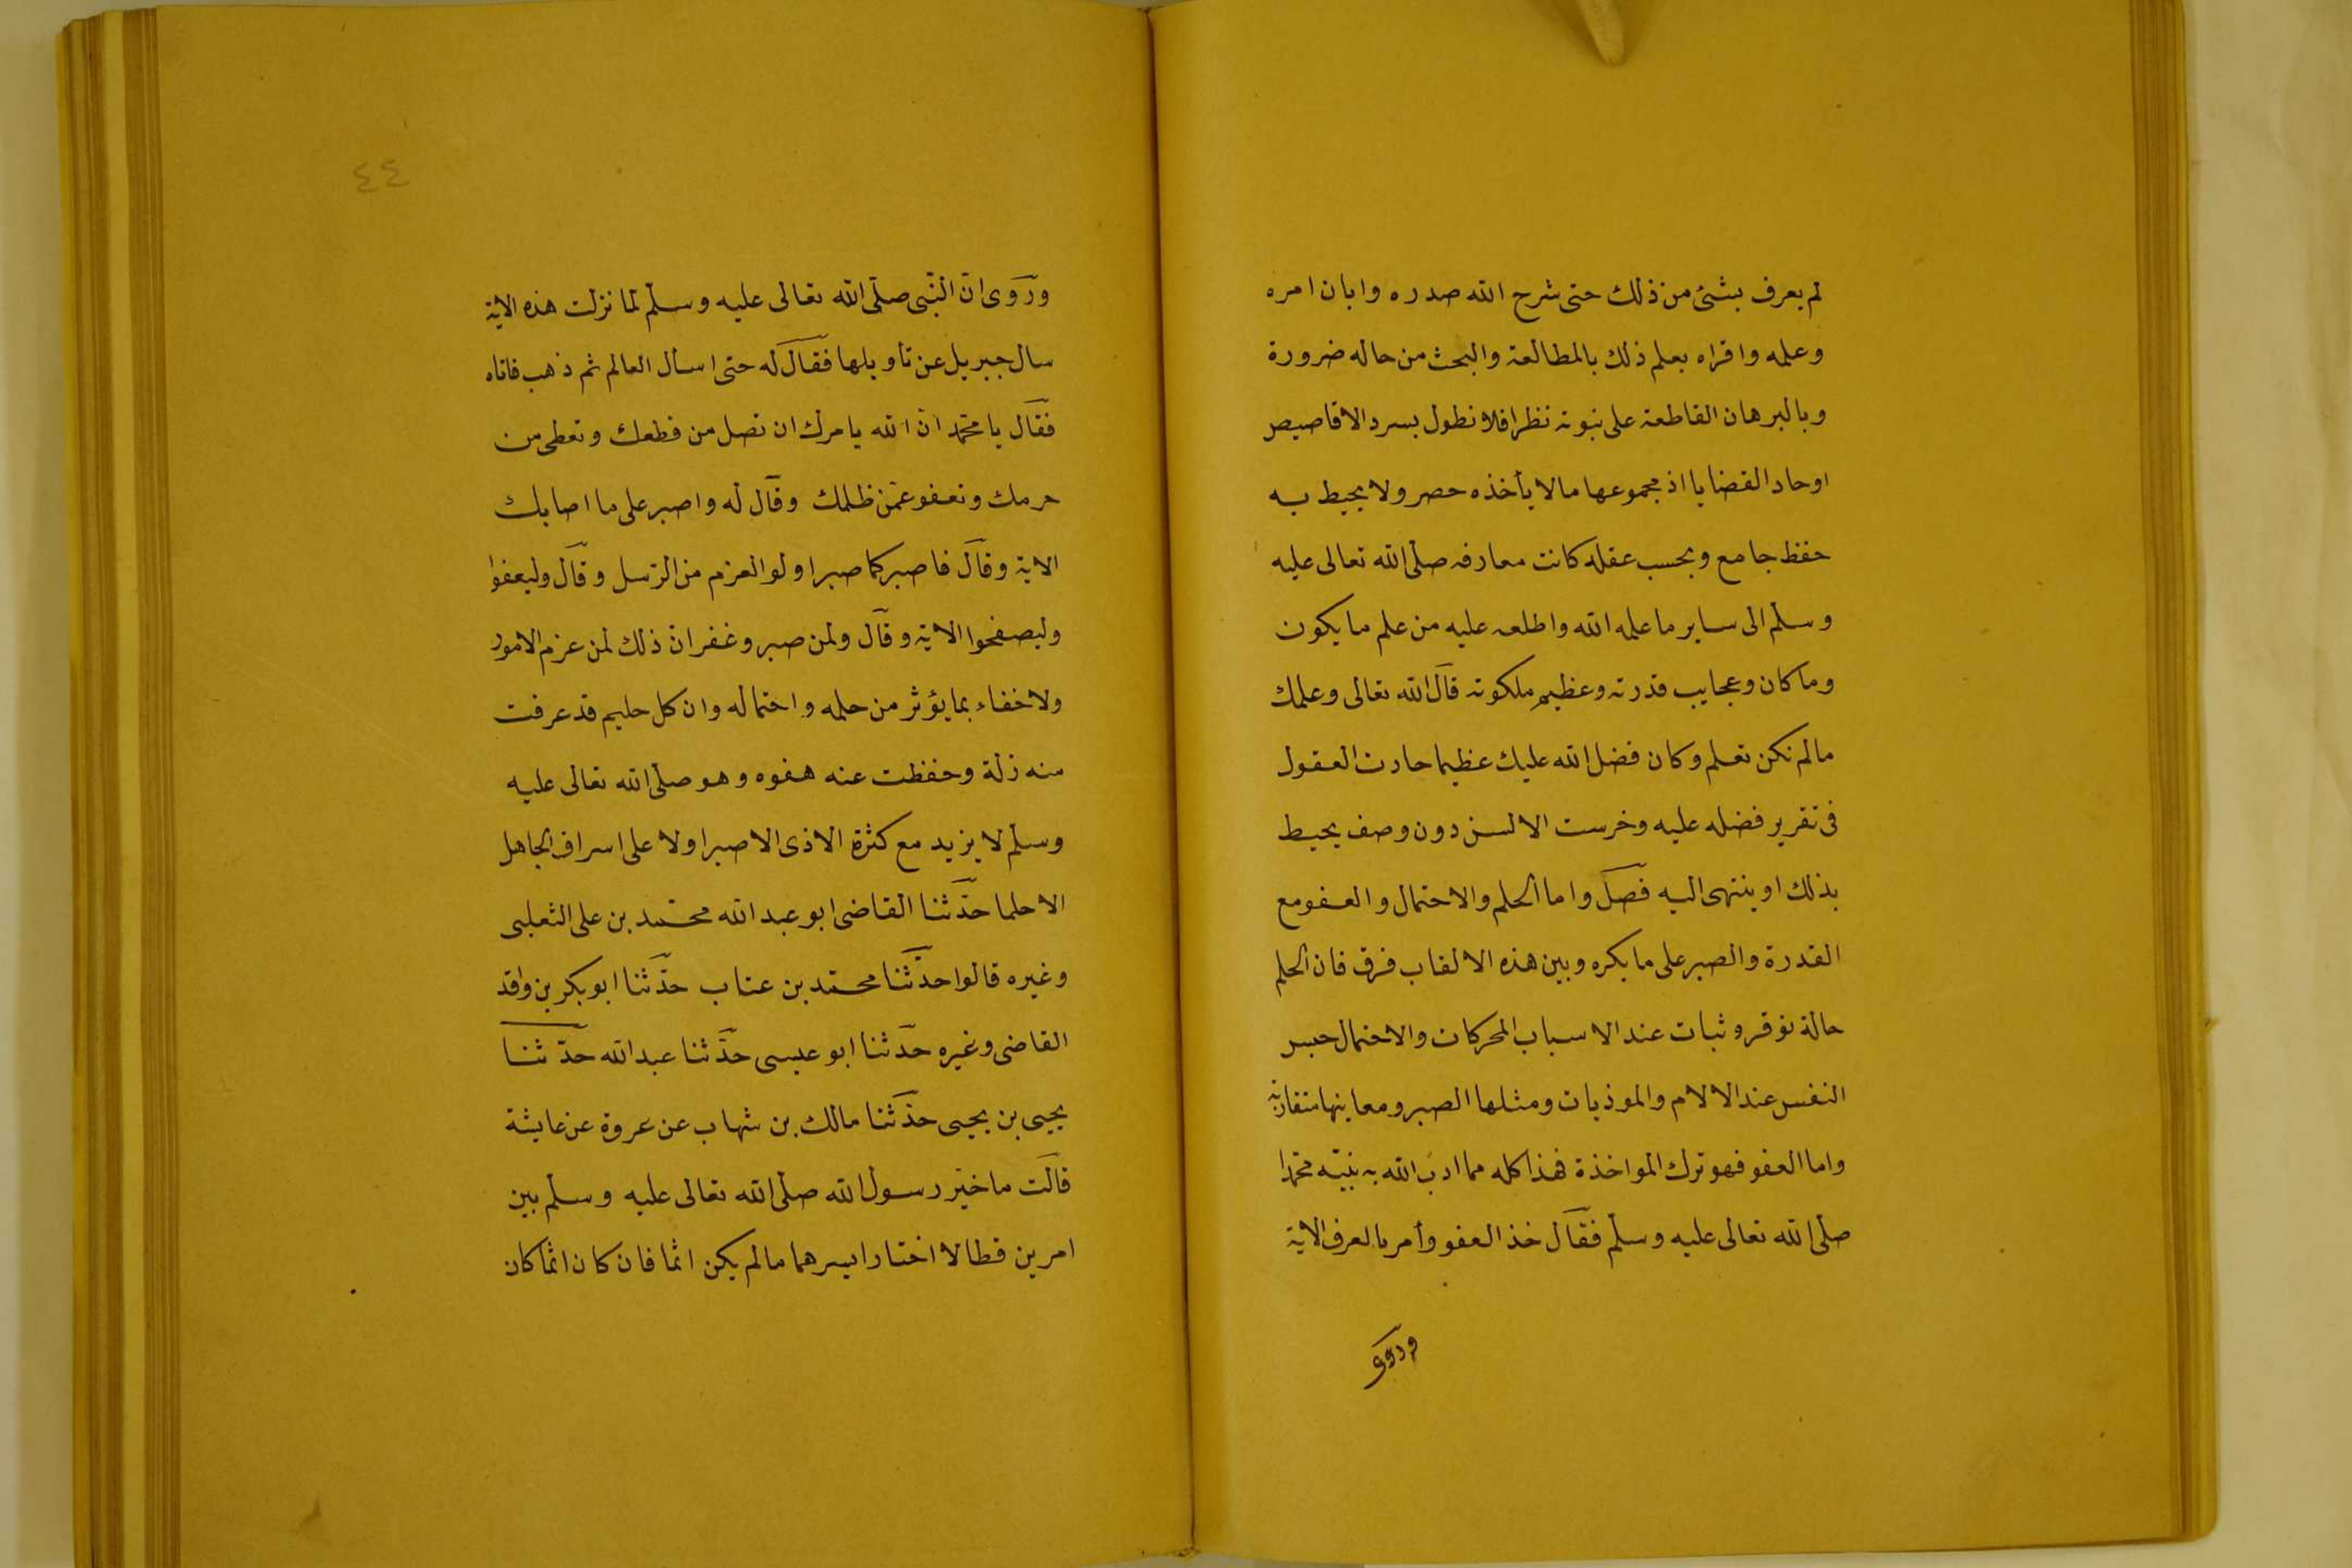 لم يعرف بشئ من ذلك حتى شرح الله صدره وابان امره
وعلمه واقراه بعلم ذلك بالمطالعة والبحث من حاله ضرورة
وبالبرهان القاطعة على نبوته نظرا فلا نطول بسرد الاقاصيص
اوحاد القضايا اذ مجموعها مالا يأخذه حصر ولا يحيط به
حفظ جامع وبحسب عقله كانت معارفه صلّى الله تعالى عليه
وسلّم الى ساير ما علمه الله واطلعه عليه من علم ما يكون
وما كان وعجايب قدرته وعظيم ملكوته قال الله تعالى وعلمك
مالم تكن تعلم وكان فضل الله عليك عظيما حارت العقول
فى تقرير فضله عليه وخرست الالسن دون وصف يحيط
بذلك او ينتهى اليه فصل واما الحلم والاحتمال والعفو مع
القدرة والصبر على ما يكره وبين هذه الالقاب فرق فان الحلم
حالة توقر وثبات عند الاسباب المحركات والاحتمال حبس
النفس عند الالام والموذيات ومثلها الصبر ومعاينها متقاربة
واما العفو فهو ترك المواخذة فهذا كله مما ادب الله به نبيّه محمّدا
صلّى الله تعالى عليه وسلّم فقال خذ العفو وأمر بالعرف الاية
وروى
٤٤
وروى انّ النّبى صلّى الله تعالى عليه وسلّم لمّا نزلت هذه الاية
سال جبريل عن تأويلها فقال له حتى اسأل العالم ثم ذهب فاتاه
فقال يا محمّد انّ الله يامرك ان تصل من قطعك وتعطى من
حرمك وتعفو عمّن ظلمك وقال له واصبر على ما اصابك
الاية وقال فاصبر كما صبر اولو العزم من الرّسل وقال وليعفوا
وليصفحوا الاية وقال ولمن صبر وغفر انّ ذلك لمن عزم الامور
ولاخفاء بما يؤثر من حلمه واحتماله وان كل حليم قد عرفت
منه زلة وحفظت عنه هفوه وهو صلّى الله تعالى عليه
وسلّم لا يزيد مع كثرة الاذى الا صبرا ولا على اسراف الجاهل
الا حلما حدّثنا القاضى ابو عبد الله محمّد بن على الثعلبى
وغيره قالوا حدّثنا محمّد بن عتاب حدّثنا ابو بكر بن واقد
القاضى وغيره حدّثنا ابو عيسى حدّثنا عبد الله حدّثنا
يحيى بن يحيى حدّثنا مالك بن شهاب عن عروة عن عايشة
قالت ما خيّر رسول الله صلّى الله تعالى عليه وسلّم بين
امرين قط الا اختار ايسرهما مالم يكن اثما فان كان اثما كان